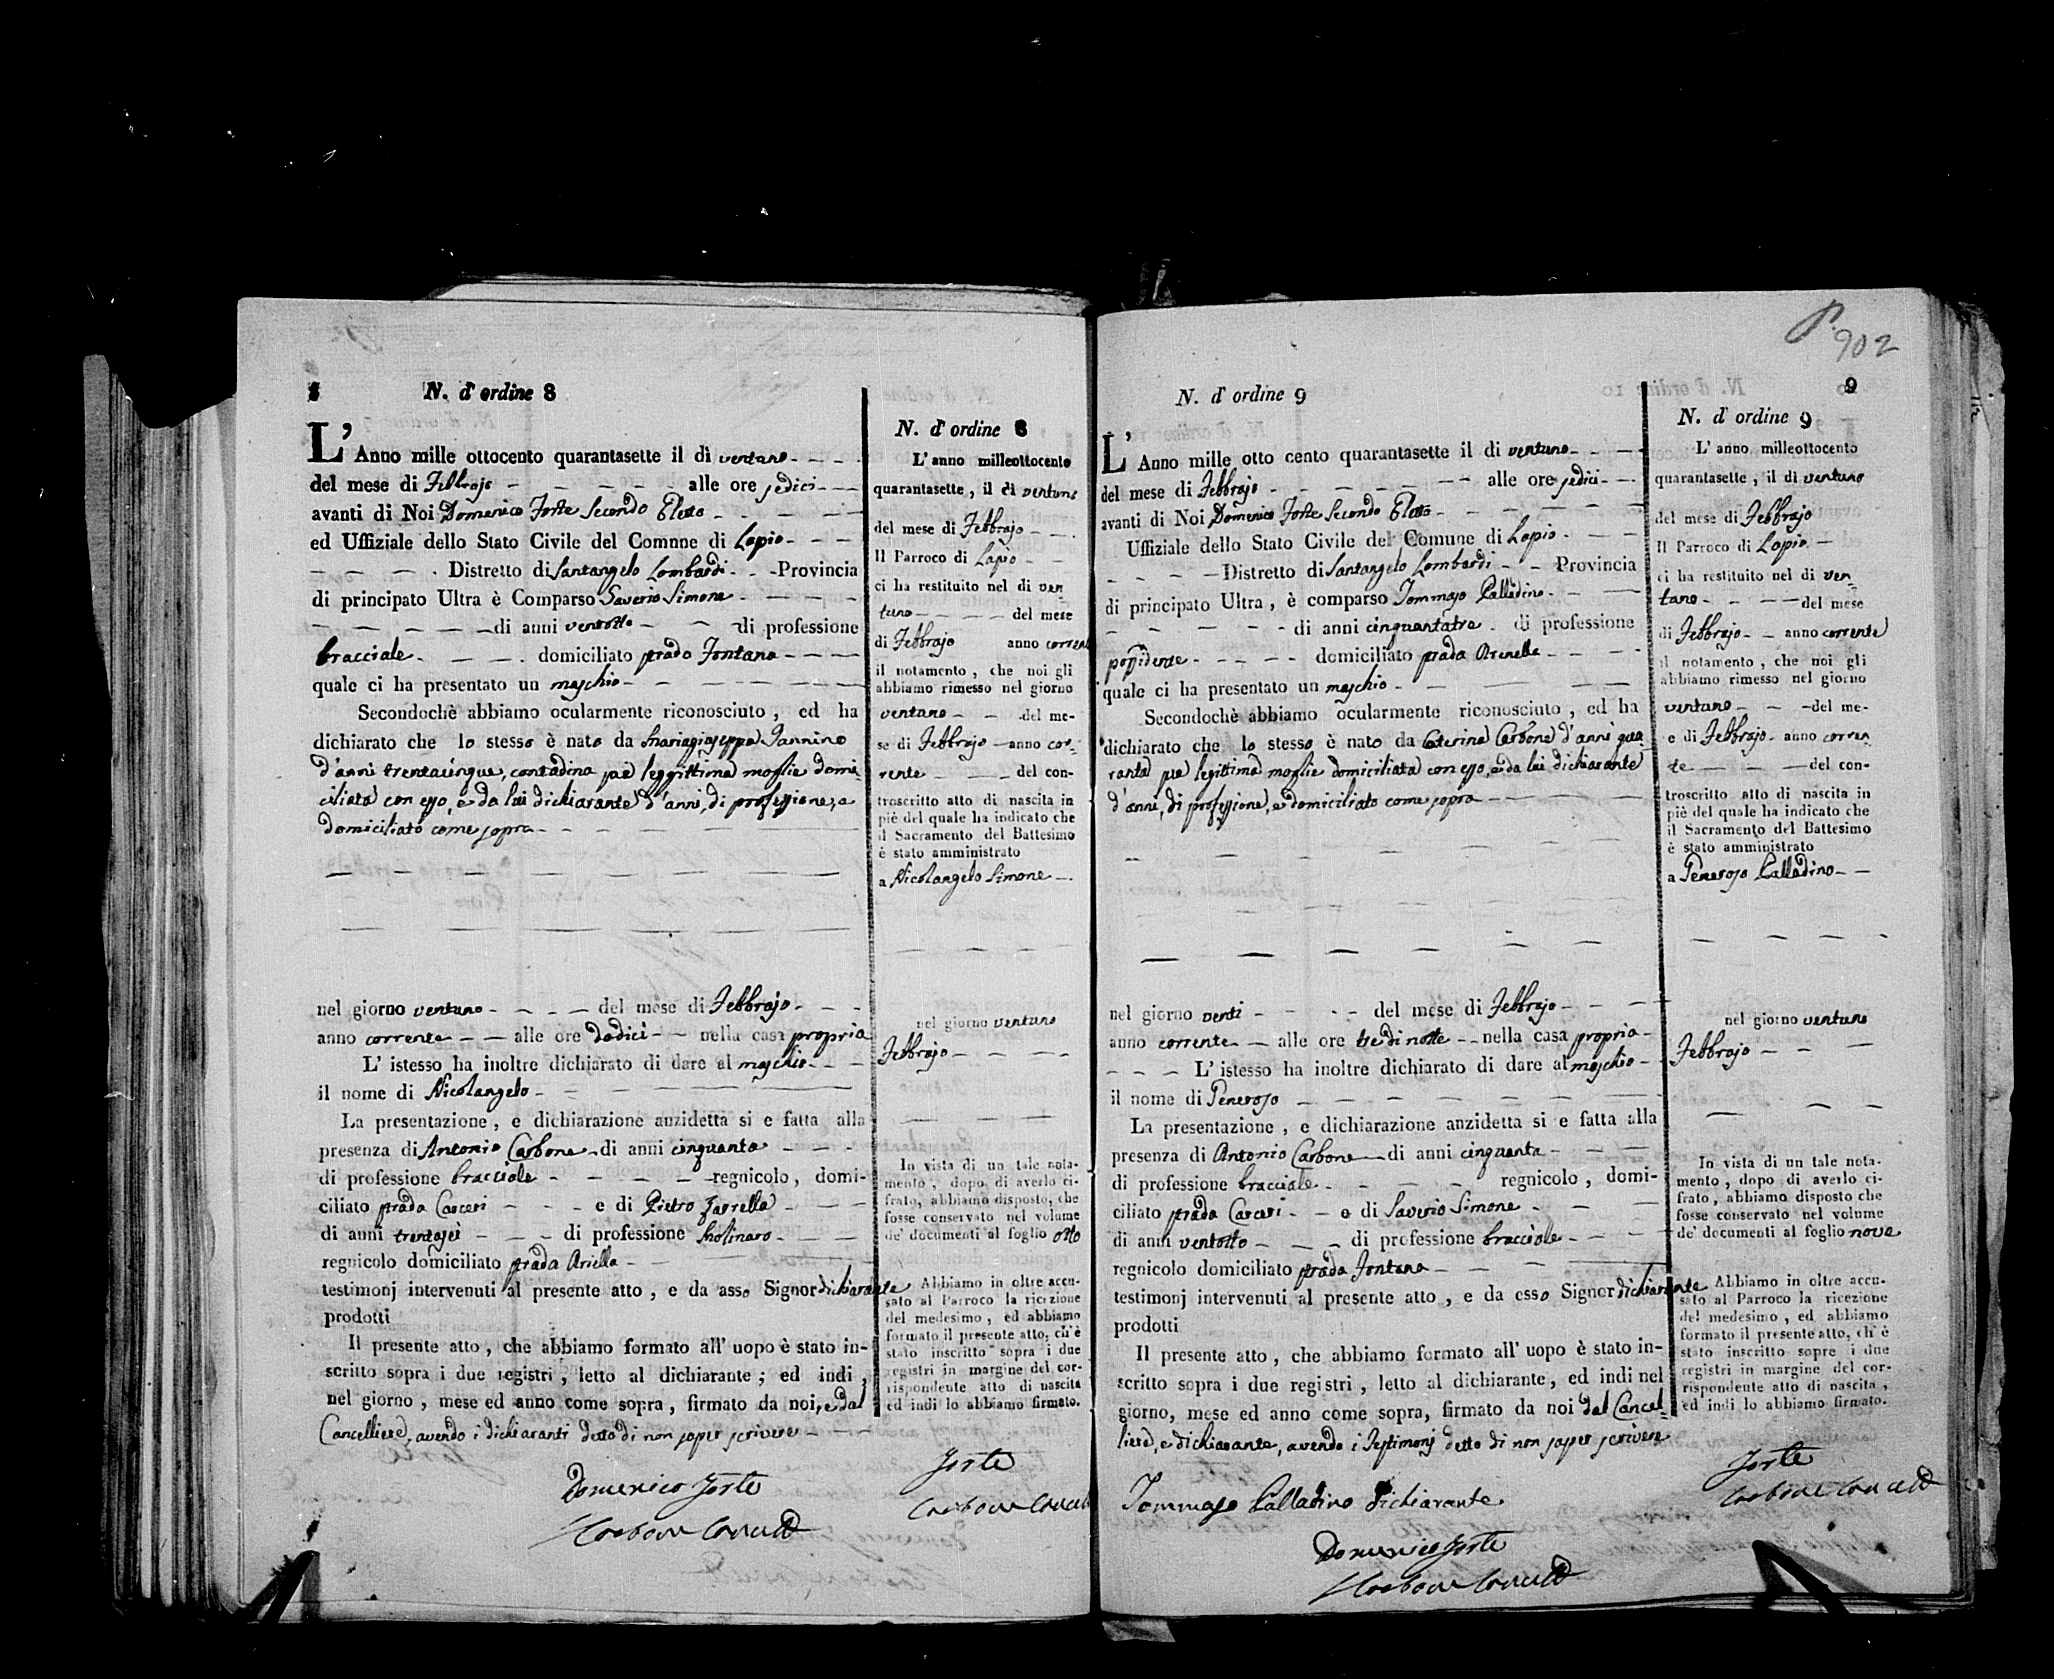 8
N. d' ordine 8
L' Anno mille ottocento quarantasette il dì ventuno
del mese di Febbrajo alle ore sedici
avanti di Noi Domenico Forte Secondo Eletto
ed Uffiziale dello Stato Civile del Comune di Lapio
Distretto di Santangelo Lombardi Provincia
di principato Ultra è Comparso Saverio Simone
di anni ventotto di professione
bracciale domiciliato strada Fontana
quale ci ha presentato un maschio
Secondochè abbiamo ocularmente riconosciuto, ed ha
dichiarato che lo stesso è nato da Mariagiuseppa Iannino
d'anni trentacinque, contadina sua leggittima moglie domi-
ciliata con esso, e da lui dichiarante d'anni, di professione, e
domiciliato come sopra
nel giorno ventuno del mese di Febbrajo
anno corrente alle ore dodici nella casa propria
L' istesso ha inoltre dichiarato di dare al maschio
il nome di Nicolangelo
La presentazione, e dichiarazione anzidetta si e fatta alla
presenza di Antonio Carbone di anni cinquanta
di professione bracciale regnicolo, domi-
ciliato strada Carceri e di Pietro Zarrella
di anni trentasei di professione Molinaro
regnicolo domiciliato strada Ariella
testimonj intervenuti al presente atto, e da asso Signor dichiarante
prodotti
Il presente atto, che abbiamo formato all' uopo è stato in-
scritto sopra i due registri, letto al dichiarante; ed indi,
nel giorno, mese ed anno come sopra, firmato da noi, e dal
Cancelliere, avendo i dichiaranti detto di non saper scrivere
Domenico Forte
Carbone Cancell
N. d' ordine 8
L' anno milleottocento
quarantasette, il di ventuno
del mese di Febbrajo
Il Parroco di Lapio
ci ha restituito nel di ven
tuno del mese
di Febbrajo anno corrent
il notamento, che noi gli
abbiamo rimesso nel giorno
ventuno del me-
se di Febbrajo anno cor-
rente del con-
troscritto atto di nascita in
piè del quale ha indicato che
il Sacramento del Battesimo
è stato amministrato
a Nicolangelo Simone
nel giorno ventuno
Febbrajo
In vista di un tale nota-
mento, dopo di averlo ci-
frato, abbiamo disposto, che
fosse conservato nel volume
de' documenti al foglio otto
Abbiamo in oltre accu-
sato al Parroco la ricezione
del medesimo, ed abbiamo
formato il presente atto, ch' è
stato inscritto sopra i due
registri in margine del cor-
rispondente atto di nascita
ed indi lo abbiamo firmato.
Forte
Carbone Cancell
902
9
N. d' ordine 9
L' Anno mille otto cento quarantasette il di ventuno
del mese di Febbrajo alle ore sedici
avanti di Noi Domenico Forte Secondo Eletto
Uffiziale dello Stato Civile del Comune di Lapio
Distretto di Santangelo Lombardi Provincia
di principato Ultra, è comparso Tommaso Palladino
di anni cinquantatre di professione
possidente domiciliato strada Arenella
quale ci ha presentato un maschio
Secondochè abbiamo ocularmente riconosciuto, ed ha
dichiarato che lo stesso è nato da Caterina Carbone d'anni qua
ranta sua legittima moglie domiciliata con esso, e da lui dichiarante
d'anni, di professione, e domiciliato come sopra
nel giorno venti del mese di Febbrajo
anno corrente alle ore tre di notte nella casa propria
L' istesso ha inoltre dichiarato di dare al maschio
il nome di Peneroso
La presentazione, e dichiarazione anzidetta si e fatta alla
presenza di Antonio Carbone di anni cinquanta
di professione bracciale regnicolo, domi-
ciliato strada Carceri e di Saverio Simone
di anni ventotto di professione bracciale
regnicolo domiciliato strada Fontana
testimonj intervenuti al presente atto, e da esso Signor dichiarante
prodotti
Il presente atto, che abbiamo formato all' uopo è stato in-
scritto sopra i due registri, letto al dichiarante, ed indi nel
giorno, mese ed anno come sopra, firmato da noi dal Cancel-
liere, e dichiarante, avendo i Testimonj detto di non saper scrivere
Tommaso Palladino dichiarante
Domenico Forte
Carbone Cancell
N. d' ordine 9
L' anno milleottocento
quarantasette, il di ventuno
del mese di Febbrajo
Il Parroco di Lapio
ci ha restituito nel di ven-
tuno del mese
di Febbrajo anno corrente
il notamento, che noi gli
abbiamo rimesso nel giorno
ventuno del me-
e di Febbrajo anno corren-
te del con-
troscritto atto di nascita in
piè del quale ha indicato che
il Sacramento del Battesimo
è stato amministrato
a Peneroso Palladino
nel giorno ventuno
Febbrajo
In vista di un tale nota-
mento, dopo di averlo ci-
frato, abbiamo disposto che
fosse conservato nel volume
de' documenti al foglio nove
Abbiamo in oltre accu-
sato al Parroco la ricezione
del medesimo, ed abbiamo
formato il presente atto, ch' è
stato inscritto sopre i due
registri in margine del cor-
rispondente atto di nascita,
ed indi lo abbiamo firmato.
Forte
Carbone Cancell